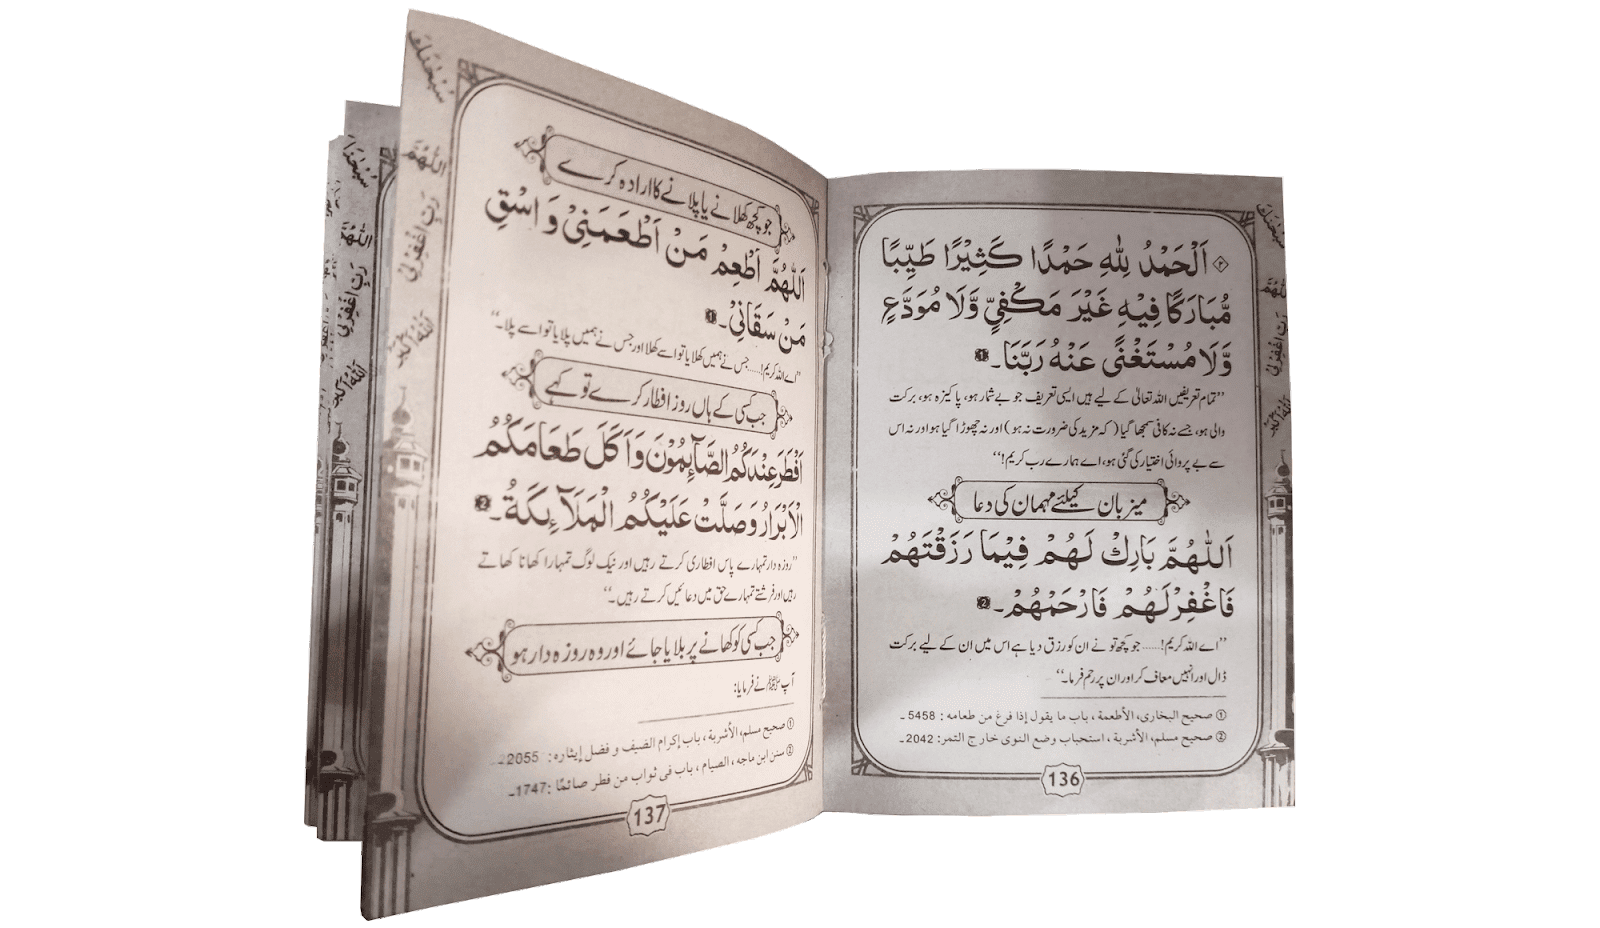 ۲ اَلْحَمْدُ لِلّٰهِ حَمْدًا كَثِيْرًا طَيِّبًا
مُّبَارَكًا فِيْهِ غَيْرَ مَكْفِيٍّ وَّلَا مُوَدَّعٍ
وَّلَا مُسْتَغْنًى عَنْهُ رَبَّنَا۔ ①
’’تمام تعریفیں اللہ تعالیٰ کے لیے ہیں ایسی تعریف جو بے شمار ہو، پاکیزہ ہو، برکت
والی ہو، جسے نہ کافی سمجھا گیا (کہ مزید کی ضرورت نہ ہو) اور نہ چھوڑا گیا ہو اور نہ اس
سے بے پروائی اختیار کی گئی ہو، اے ہمارے رب کریم!‘‘
میزبان کیلئے مہمان کی دعا
اَللّٰهُمَّ بَارِكْ لَهُمْ فِيْمَا رَزَقْتَهُمْ
فَاغْفِرْلَهُمْ فَارْحَمْهُمْ۔ ②
’’اے اللہ کریم!...... جو کچھ تو نے ان کو رزق دیا ہے اس میں ان کے لیے برکت
ڈال اور انہیں معاف کر اور ان پر رحم فرما۔‘‘
① صحيح البخاری، الأطعمة ، باب ما يقول إذا فرغ من طعامه : 5458 ۔
② صحيح مسلم، الأشربة ، استحباب وضع النوى خارج التمر: 2042۔
136
جو کچھ کھلانے یا پلانے کا ارادہ کرے
اَللّٰهُمَّ اَطْعِمْ مَنْ اَطْعَمَنِيْ وَ اسْقِ
مَنْ سَقَانِيْ۔ ①
’’اے اللہ کریم!...... جس نے ہمیں کھلایا تو اسے کھلا اور جس نے ہمیں پلایا تو اسے پلا۔‘‘
جب کسی کے ہاں روزہ افطار کرے تو کہے
اَفْطَرَ عِنْدَكُمُ الصَّآئِمُوْنَ وَ اَكَلَ طَعَامَكُمُ
الْاَبْرَارُ وَصَلَّتْ عَلَيْكُمُ الْمَلَآئِكَةُ۔ ②
’’روزہ دار تمہارے پاس افطاری کرتے رہیں اور نیک لوگ تمہارا کھانا کھاتے
رہیں اور فرشتے تمہارے حق میں دعائیں کرتے رہیں۔‘‘
جب کسی کو کھانے پر بلایا جائے اور وہ روزہ دار ہو
آپ ﷺ نے فرمایا:
① صحيح مسلم، الأشربة ، باب إكرام الضيف و فضل إيثاره : 2055۔
② سنن ابن ماجه ، الصيام ، باب فی ثواب من فطر صائمًا :1747۔
137
سُبْحٰنَكَ
اَللّٰهُمَّ
رَبِّ اغْفِرْلِيْ
اَللّٰهُ اَكْبَرُ